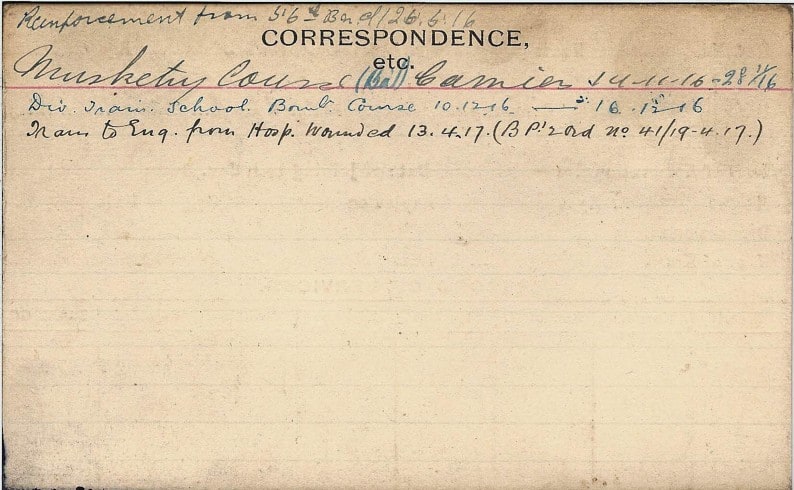 Reinforcement from 56th Bn d/26.6.16
CORRESPONDENCE,
etc.
Musketry Course (Bal) Camiers 14-11-16-28/11/16
Div. Train. School. Bomb Course 10.12.16. — 16.12.16
Trans to Eng. from Hosp. Wounded 13.4.17. (B P! 2 ord no 41/19-4.17.)